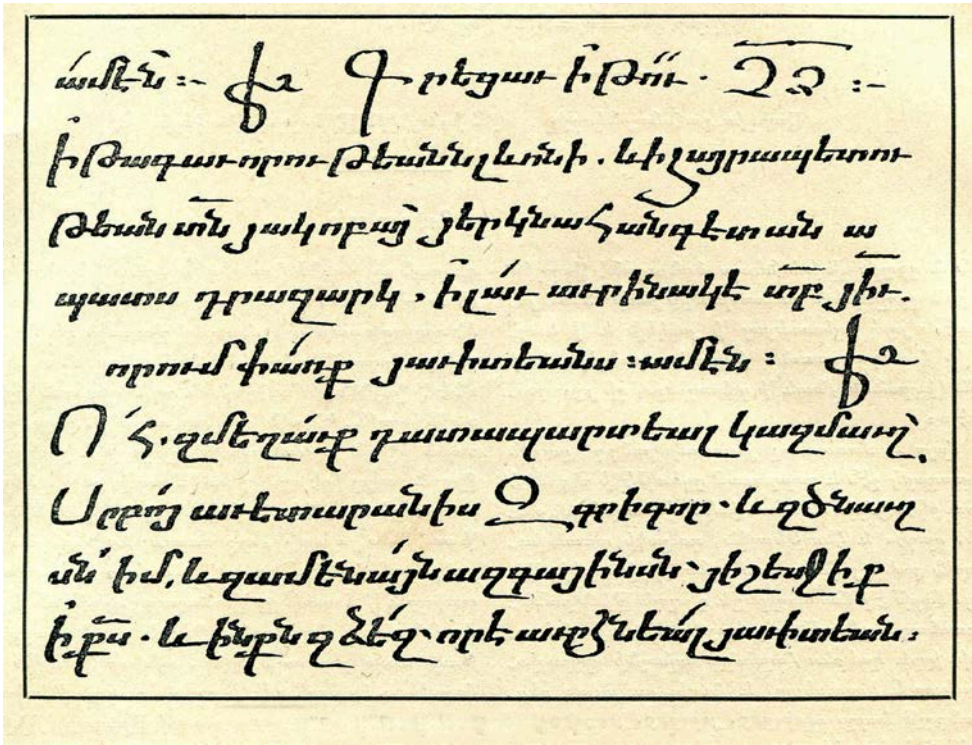 ամէն :- Գրեցաւ ի թու · ՉՁ :-
ի թագաւորութեանն լևոնի . և իշայրապետու
թեան տն յակոբայ յերկնահանգէտ ան ա
պատս դրազարկ , ի լաւ աւրինակէ
որում փառք յաւիտեանս : ամէն :
Ո՛Հ . զմեղաւք դատապարտեալ կազմաւղ .
Սրբոյ աւետարանիս զգրիգոր · և զծնաւղ
սն իմ , և զամենայն ազգայինսն յիշեսջիք
ի քս · և ինքն զձեզ որ է աւրհնեալ յաւիտեան :